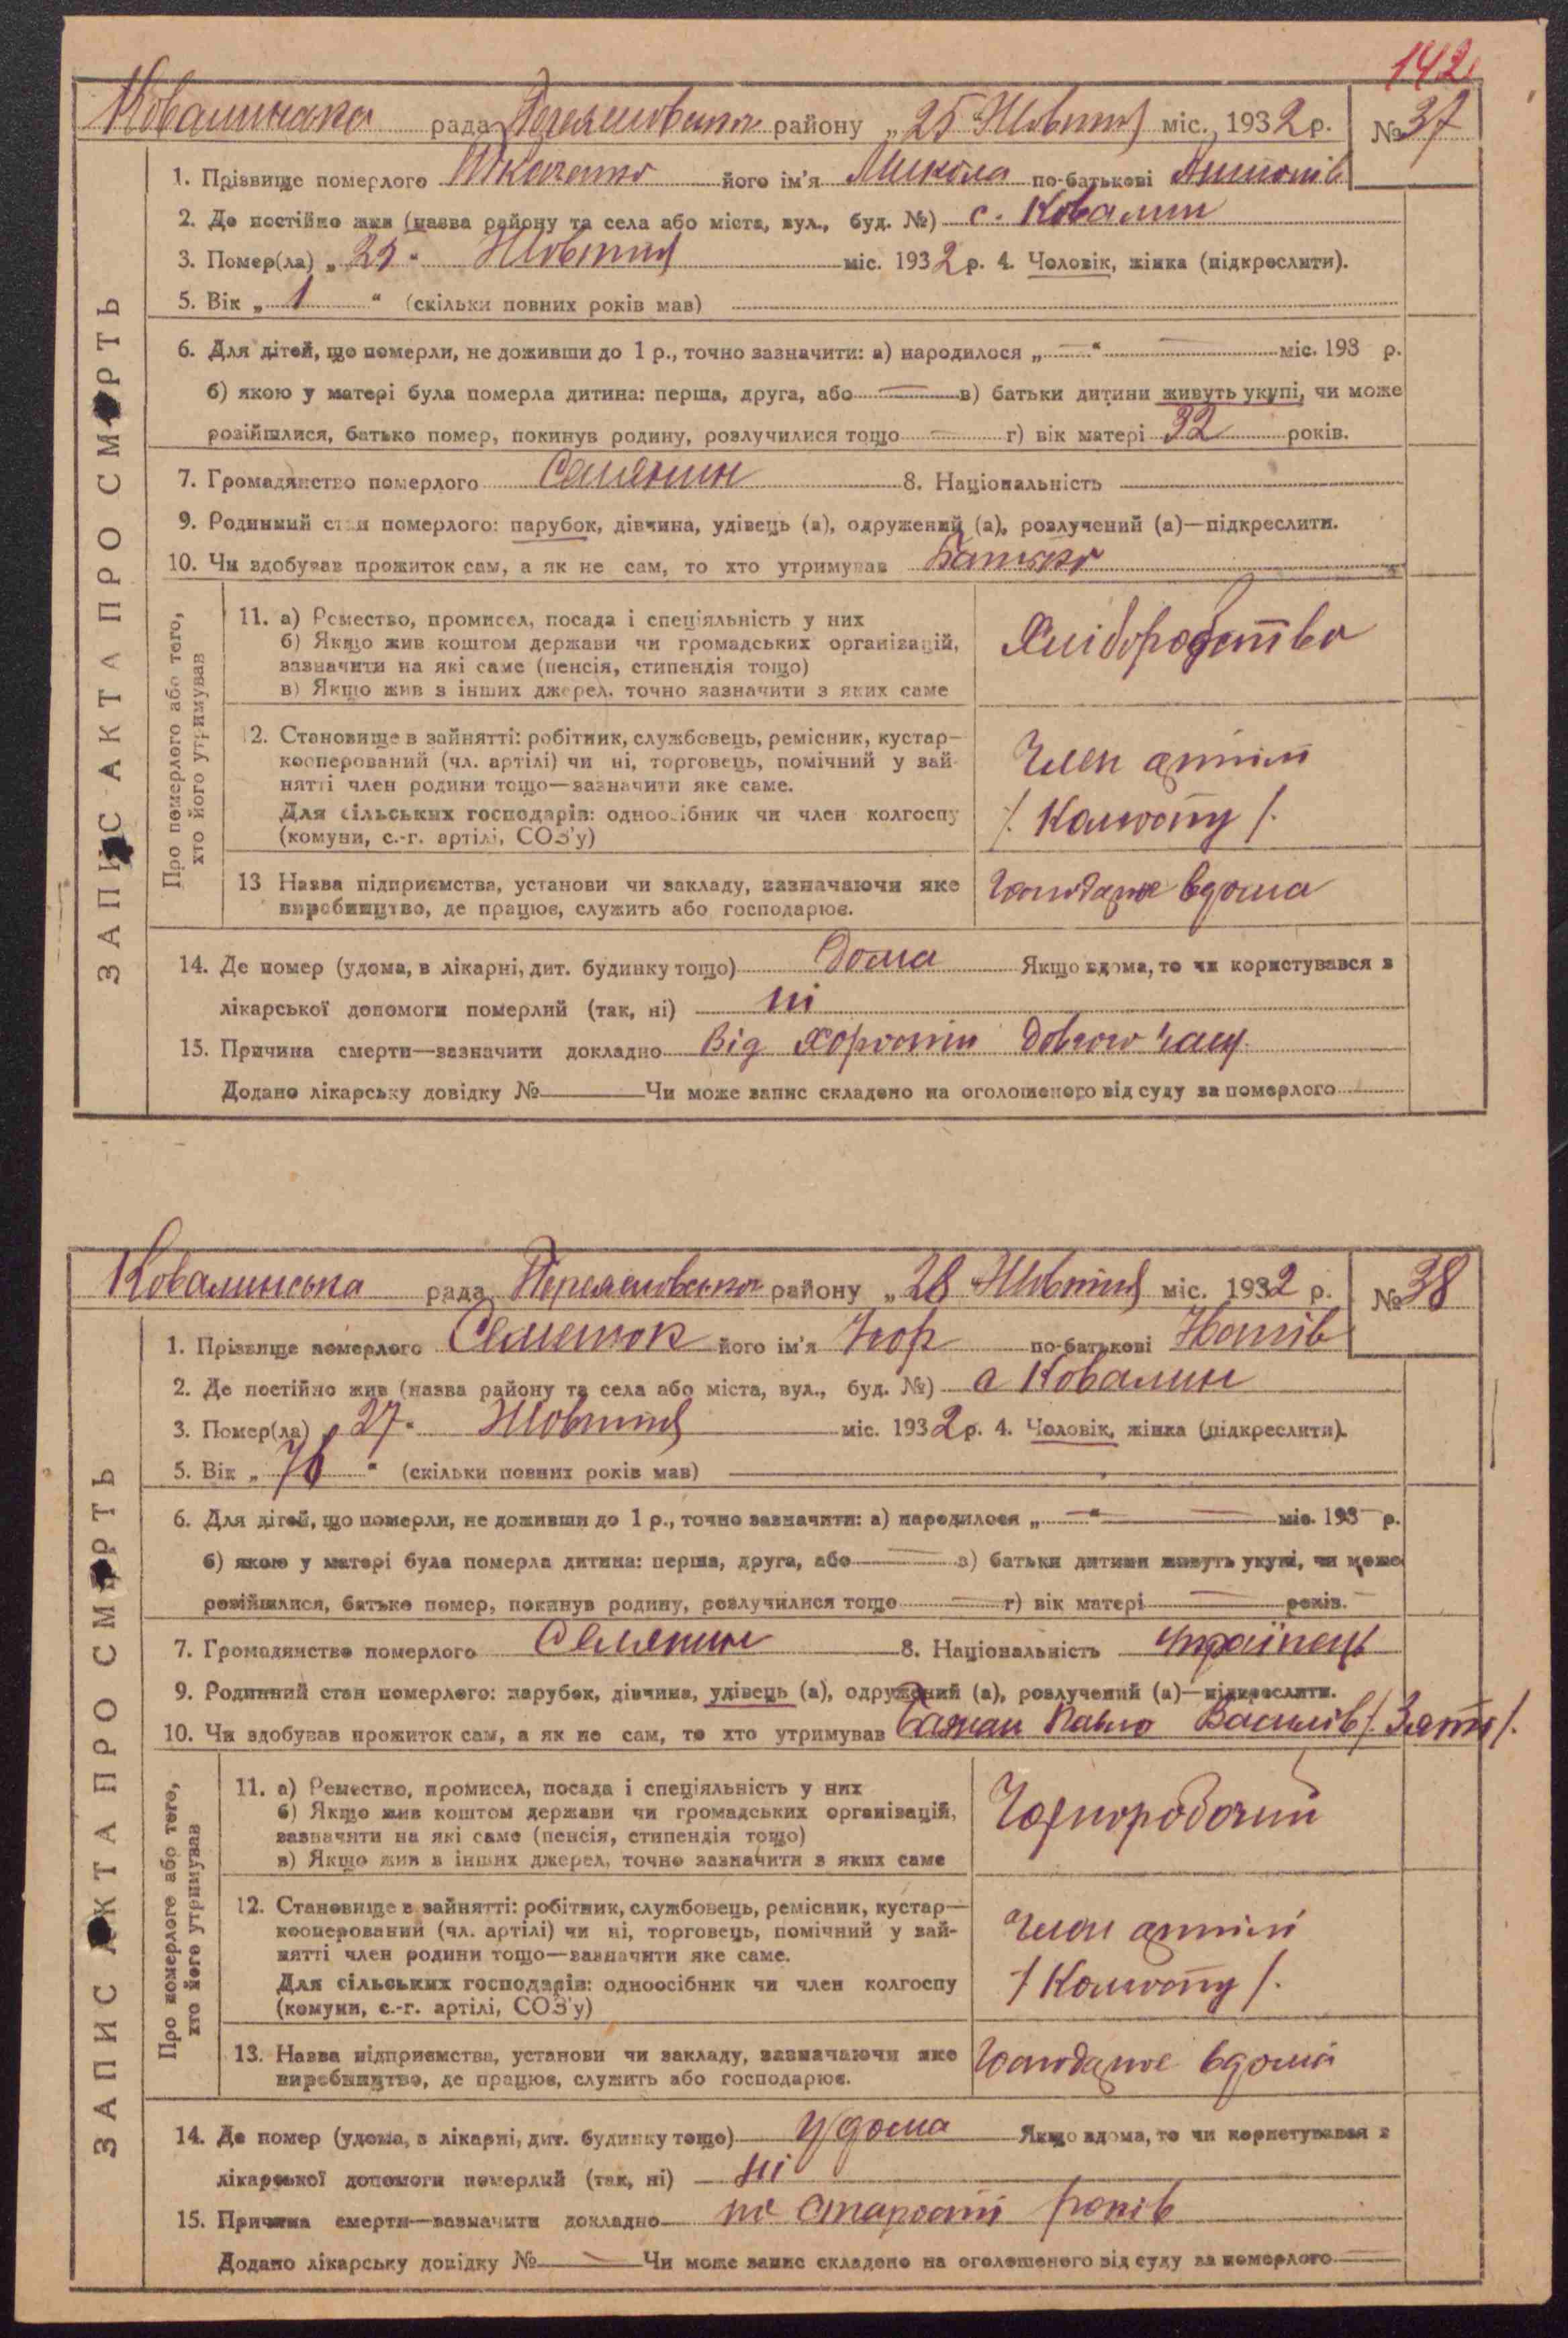 142
Ковалинська рада Переяславського району „25 Жовтня міс. 1932 р. № 37
1. Прізвище померлого Ткаченко його ім'я Микола по-батькові Антонів
2. Де постійно жив (назва району та села або міста, вул., буд. №) с. Ковалин
3. Помер(ла) „25“ Жовтня міс. 1932 р. 4. Чоловік, жінка (підкреслити).
5. Вік „1“ (скільки повних років мав)
6. Для дітей, що померли, не доживши до 1 р., точно зазначити: а) народилося „—“ — міс. 193 р.
б) якою у матері була померла дитина: перша, друга, або — в) батьки дитини живуть укупі, чи може
розійшлися, батько помер, покинув родину, розлучилися тощо — г) вік матері 32 років.
7. Громадянство померлого Селянин 8. Національність
9. Родинний стан померлого: парубок, дівчина, удівець (а), одружений (а), розлучений (а)—підкреслити.
10. Чи здобував прожиток сам, а як не сам, то хто утримував Батько
ЗАПИС АКТА ПРО СМЕРТЬ
Про померлого або того,
хто його утримував
11. а) Ремество, промисел, посада і спеціяльність у них
б) Якщо жив коштом держави чи громадських організацій,
зазначити на які саме (пенсія, стипендія тощо)
в) Якщо жив з інших джерел, точно зазначити з яких саме
Хліборобство
12. Становище в зайнятті: робітник, службовець, ремісник, кустар—
кооперований (чл. артілі) чи ні, торговець, помічний у зай-
нятті член родини тощо—зазначити яке саме.
Для сільських господарів: одноосібник чи член колгоспу
(комуни, с.-г. артілі, СОЗ'у)
Член артілі
/. Колгоспу /.
13 Назва підприємства, установи чи закладу, зазначаючи яке
виробництво, де працює, служить або господарює.
Господарює вдома
14. Де помер (удома, в лікарні, дит. будинку тощо) Дома Якщо вдома, то чи користувався з
лікарської допомоги померлий (так, ні) ні
15. Причина смерти—зазначити докладно Від хоростіи довгого часу
Додано лікарську довідку № Чи може запис складено на оголошеного від суду за померлого
Ковалинська рада Переяславського району „28 Жовтня міс. 1932 р. № 38
1. Прізвище померлого Семенюк його ім'я по-батькові
2. Де постійно жив (назва району та села або міста, вул., буд. №) с Ковалин
3. Помер(ла) „27“ Жовтня міс. 1932 р. 4. Чоловік, жінка (підкреслити).
5. Вік „76“ (скільки повних років мав)
6. Для дітей, що померли, не доживши до 1 р., точно зазначити: а) народилося „—“ — міс. 193 р.
б) якою у матері була померла дитина: перша, друга, або — в) батьки дитини живуть укупі, чи може
розійшлися, батько помер, покинув родину, розлучилися тощо — г) вік матері — років.
7. Громадянство померлого Селянин 8. Національність Українець
9. Родинний стан померлого: парубок, дівчина, удівець (а), одружений (а), розлучений (а)—підкреслити.
10. Чи здобував прожиток сам, а як не сам, то хто утримував Бажан Павло Василів /. Зять /.
ЗАПИС АКТА ПРО СМЕРТЬ
Про померлого або того,
хто його утримував
11. а) Ремество, промисел, посада і спеціяльність у них
б) Якщо жив коштом держави чи громадських організацій,
зазначити на які саме (пенсія, стипендія тощо)
в) Якщо жив з інших джерел, точно зазначити з яких саме
Чорноробочий
12. Становище в зайнятті: робітник, службовець, ремісник, кустар—
кооперований (чл. артілі) чи ні, торговець, помічний у зай-
нятті член родини тощо—зазначити яке саме.
Для сільських господарів: одноосібник чи член колгоспу
(комуни, с.-г. артілі, СОЗ'у)
Член артілі
/ Колгоспу /.
13. Назва підприємства, установи чи закладу, зазначаючи яке
виробництво, де працює, служить або господарює.
Господарює вдома
14. Де помер (удома, в лікарні, дит. будинку тощо) удома Якщо вдома, то чи користувався з
лікарської допомоги померлий (так, ні) ні
15. Причина смерти—зазначити докладно по старості років
Додано лікарську довідку № — Чи може запис складено на оголошеного від суду за померлого —